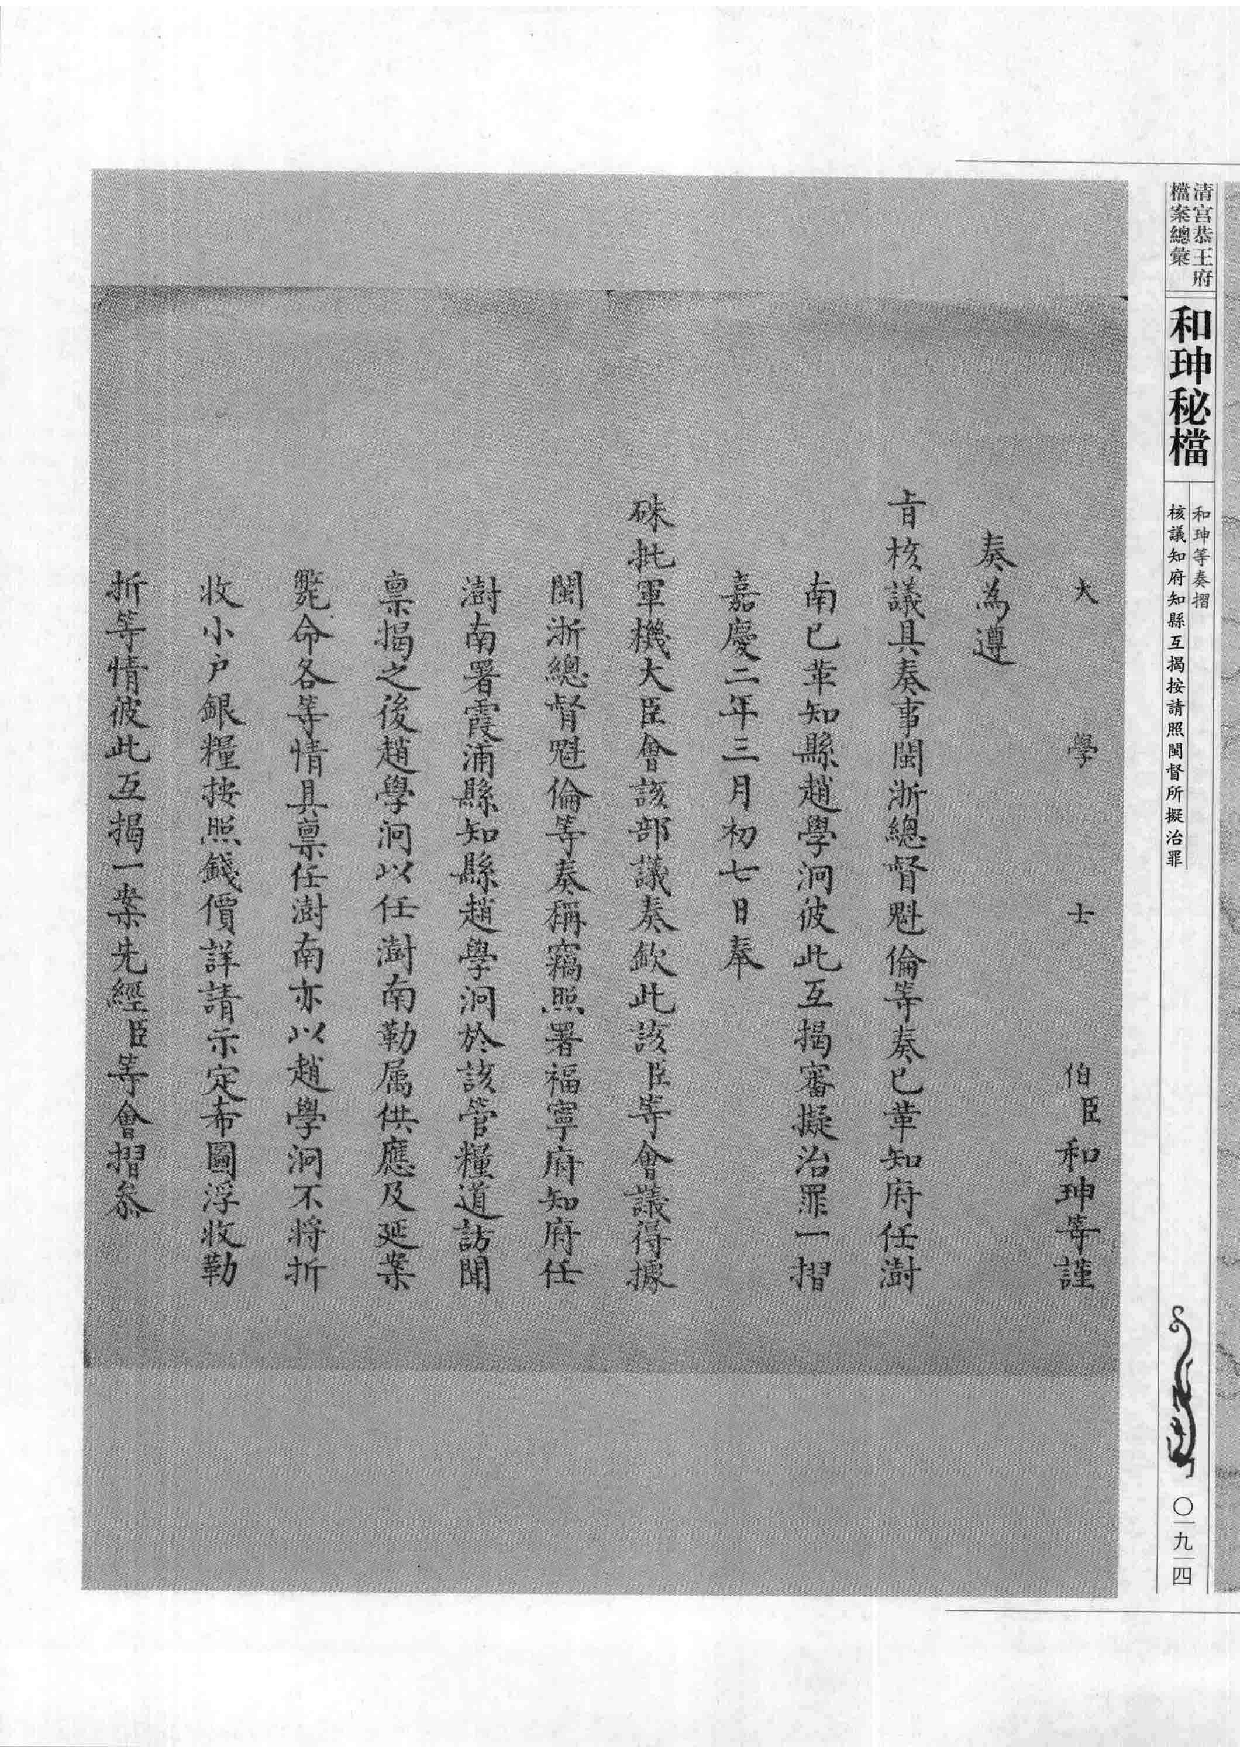 清宮恭王府
檔案總彙
和珅秘檔
和珅等奏摺
核議知府知縣互揭按請照閩督所擬治罪
〇一九一四
大學士伯臣和珅等謹
奏為遵
旨核議具奏事閩浙總督魁倫等奏已革知府任澍
南已革知縣趙學洞彼此互揭審擬治罪一摺
嘉慶二年三月初七日奉
硃批軍機大臣會該部議奏欽此該臣等會議得據
閩浙總督魁倫等奏稱竊照署福寧府知府任
澍南署霞浦縣知縣趙學洞於該管糧道訪聞
稟揭之後趙學洞以任澍南勒属供應及延案
斃命各等情具稟任澍南亦以趙學洞不將折
收小户銀糧按照錢價詳請示定布圖浮收勒
折等情彼此互揭一案先經臣等會摺叅